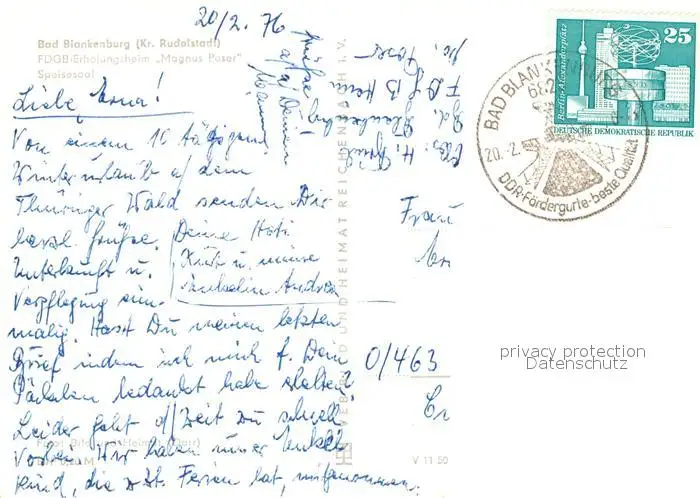 20/2. 76
Bad Blankenburg (Kr. Rudolstadt)
FDGB-Erholungsheim „Magnus Poser"
Speisesaal
Liebe Erna!
Von einem 10 tägigen
Winterurlaub a/ dem
Thüringer Wald senden Dir
herzl. Grüße.
Unterkunft u.
Verpflegung ein-
malig. Hast Du meinen letzten
Brief indem ich mich f. Dein
Päckchen bedankt habe erhalten?
Leider geht d/ Zeit zu schnell
vorbei. Wir haben unser Enkel-
kind, die z. Zt. Ferien hat, mitgenommen.
Deine Hoti
Kurt u. unsere
Enkelin Andrea
Grüße
a/a/ Deinen
Abs: H.
Bd. Blankenburg
FDGB Heim
Poser
VEB BILD UND HEIMAT REICHENBACH I. V.
Foto: Bild und Heimat (Darr)
V 11 50
0/463
Frau
BAD BLANKENBURG
682
20. 2.
DDR-Fördergurte-beste Qualität
25
Berlin-Alexanderplatz
DEUTSCHE DEMOKRATISCHE REPUBLIK
privacy protection
Datenschutz